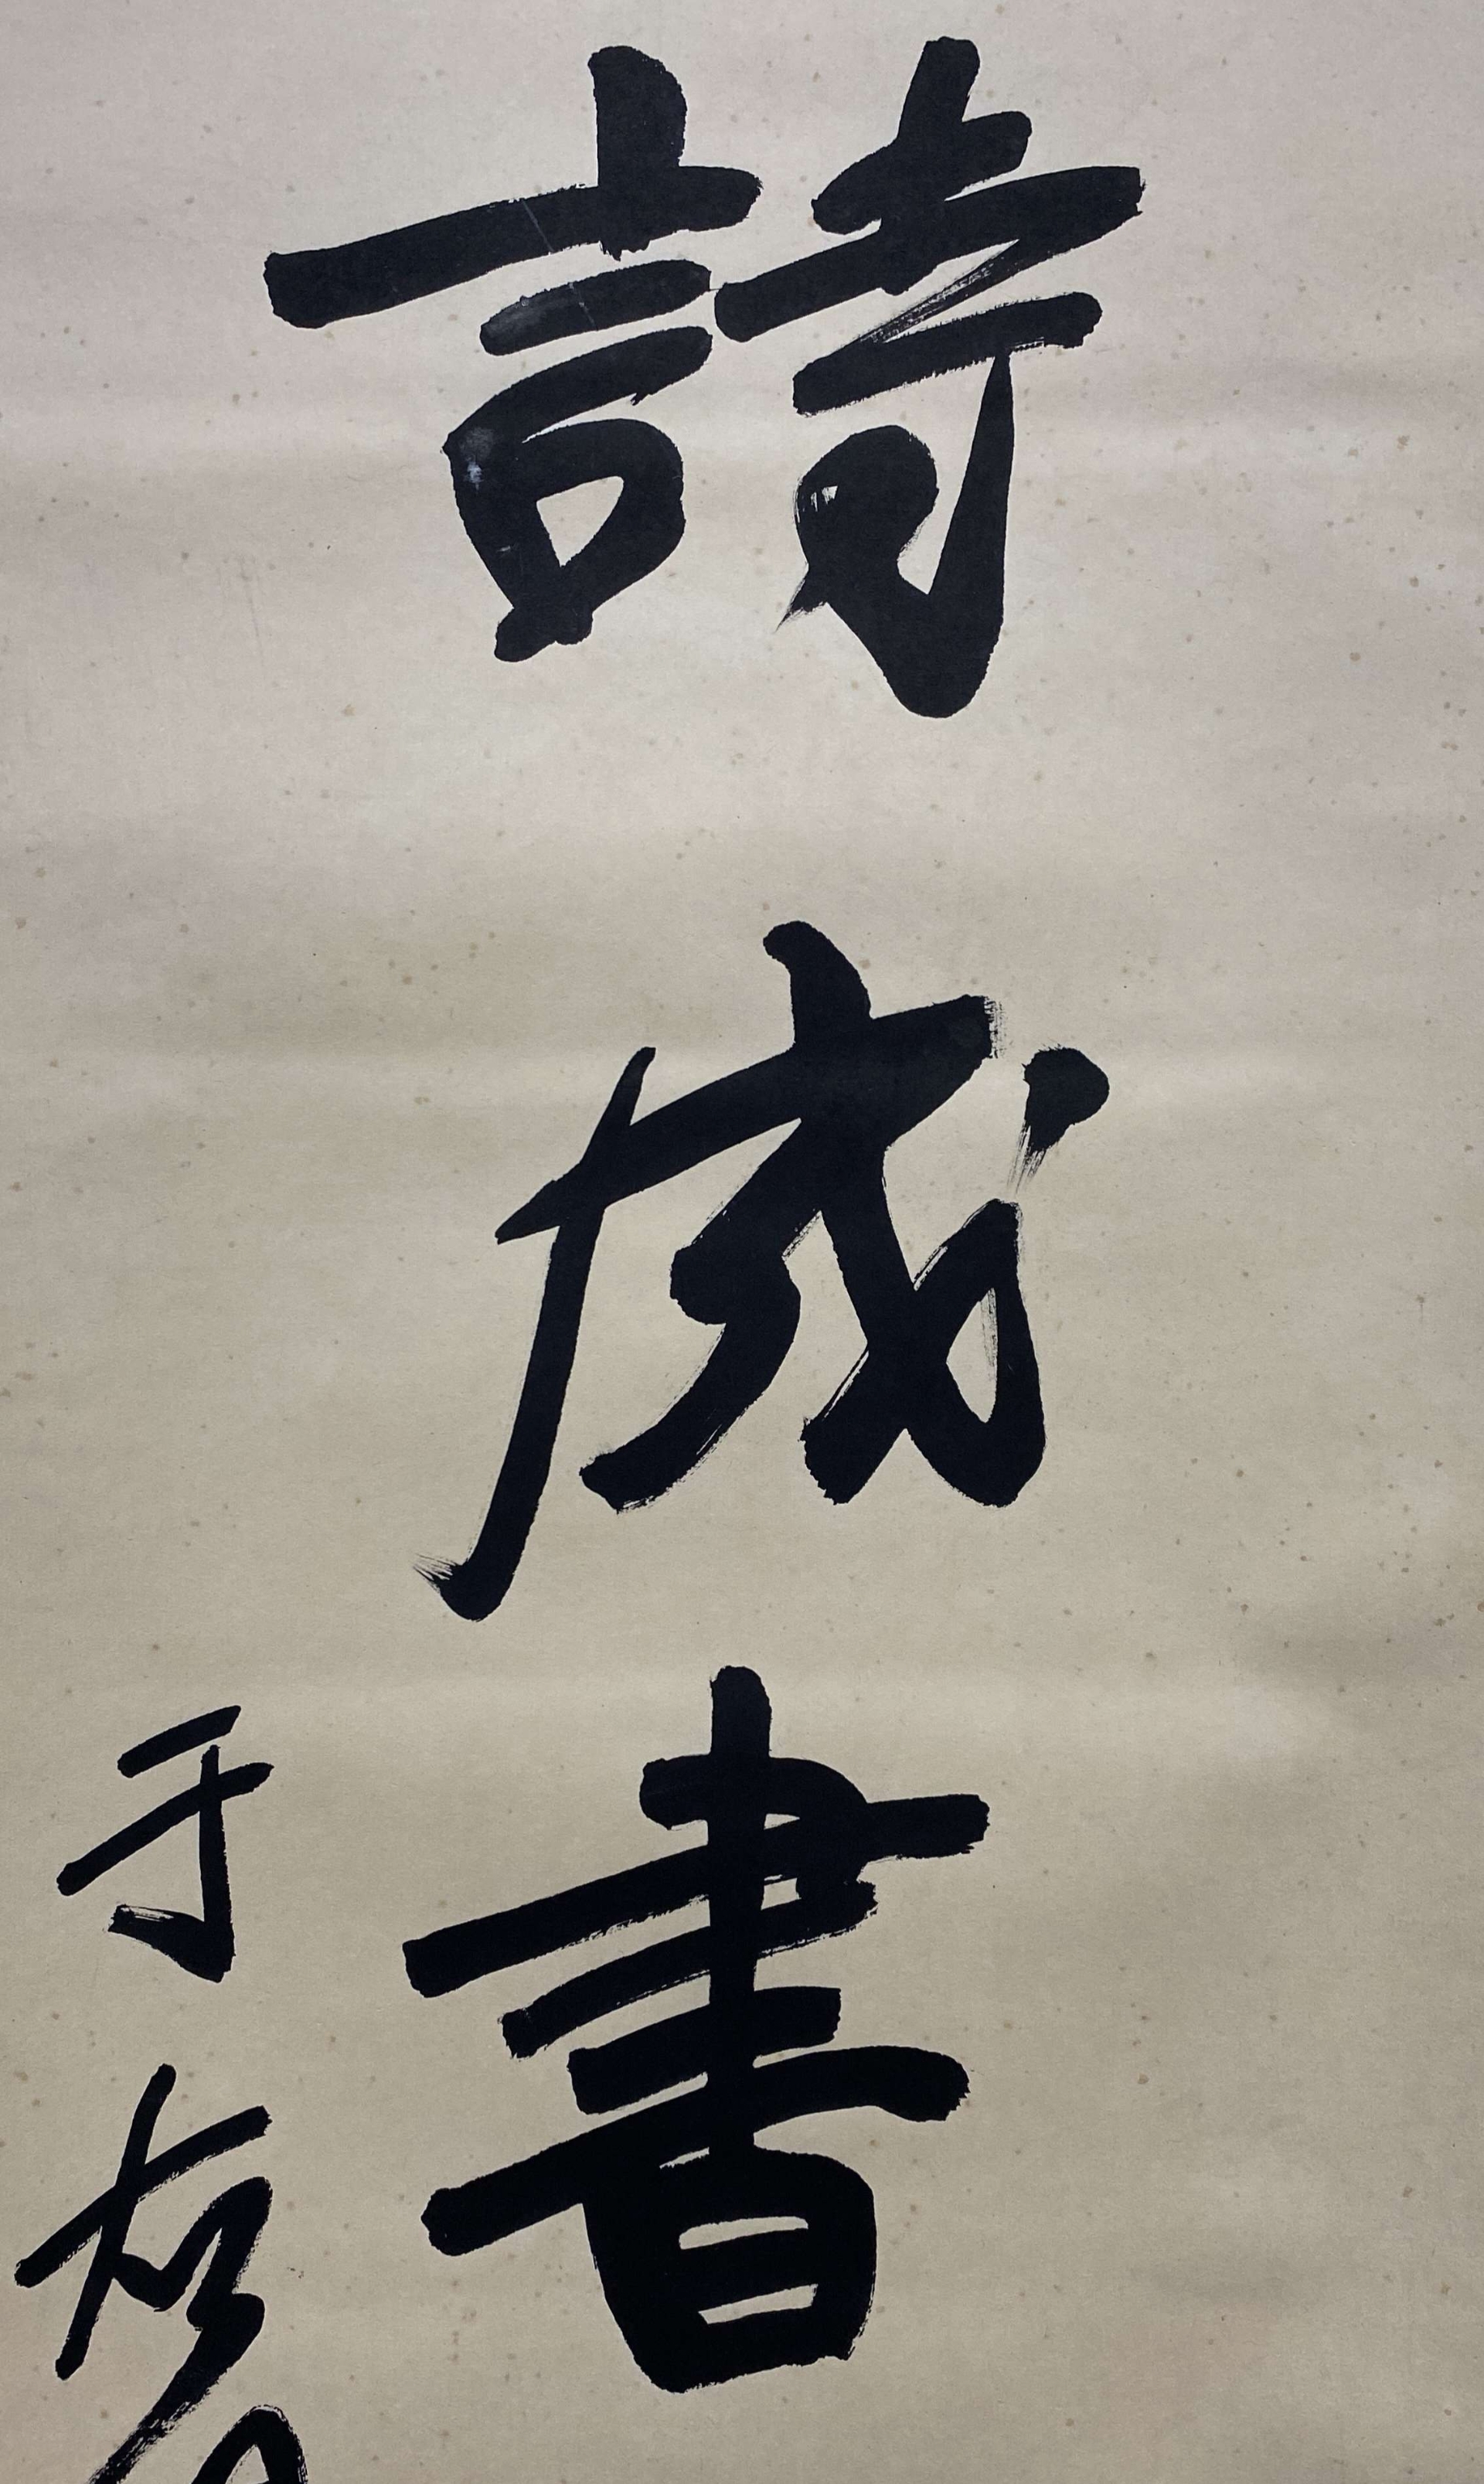 詩成書
于右